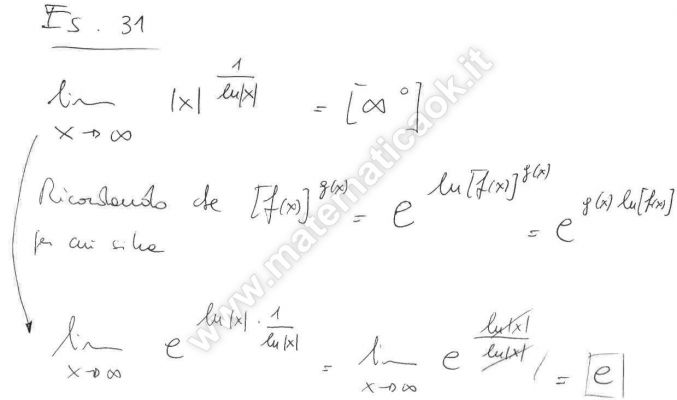 Es. 31
lim x→∞ |x|^(1/ln|x|) = [∞^0]
Ricordando che [f(x)]^g(x) = e^(ln[f(x)]^g(x)) = e^(g(x) ln[f(x)])
per cui si ha
lim x→∞ e^(ln|x| · 1/ln|x|) = lim x→∞ e^(ln|x|/ln|x|) = e
www.matematicaok.it